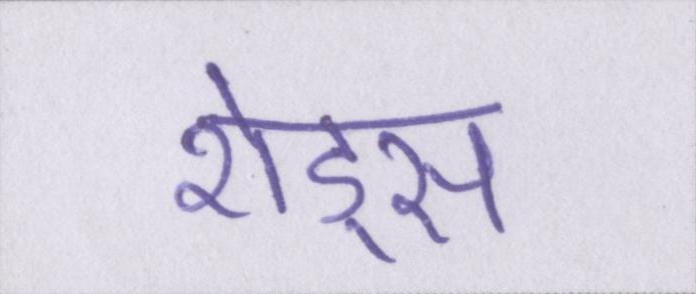 शेड्स